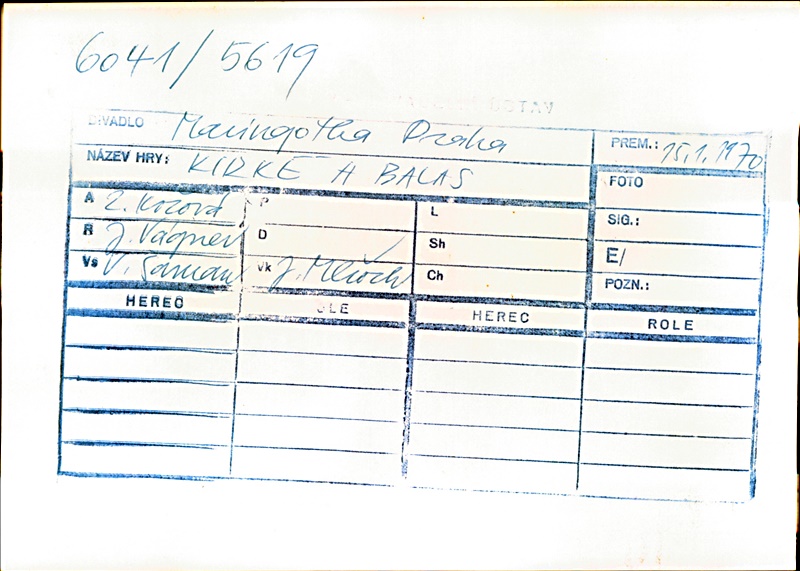 6041/5619
DIVADLO Maringotka Praha PREM.: 15.1.1970
NÁZEV HRY: KIRKÉ A BALAS FOTO
A Z. Kozová P L SIG.:
R J. Vágner D Sh E/
Vs V. Vk J. Ch POZN.:
HEREC ROLE HEREC ROLE